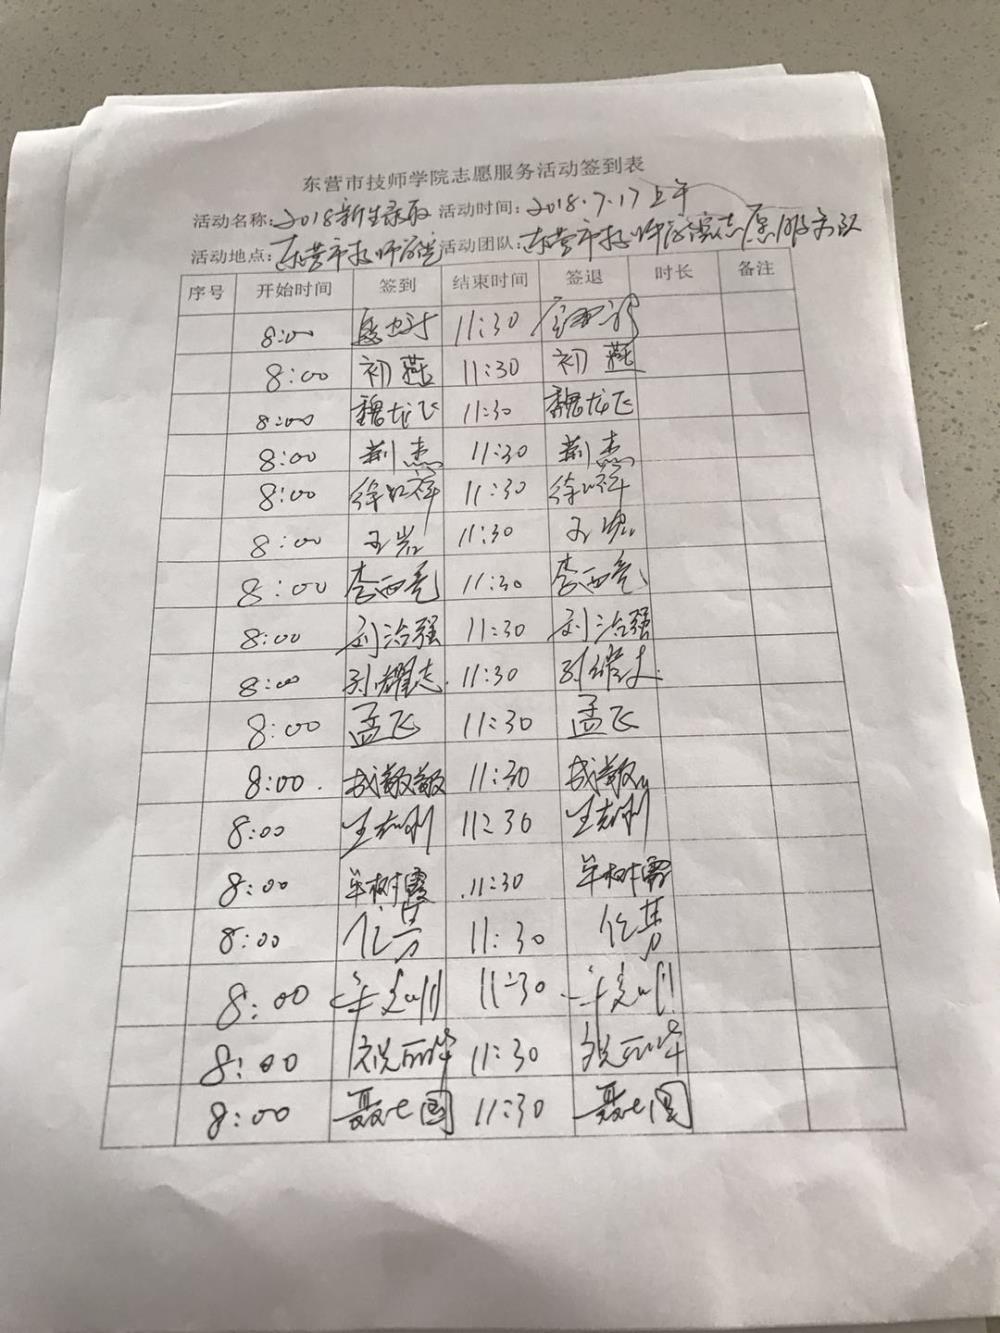 东营市技师学院志愿服务活动签到表
活动名称:2018新生录取 活动时间:2018.7.17上午
活动地点:东营市技师学院 活动团队:东营市技师学院志愿服务队
序号 开始时间 签到 结束时间 签退 时长 备注
8:00 11:30
8:00 初燕 11:30 初燕
8:00 魏龙飞 11:30 魏龙飞
8:00 荆杰 11:30 荆杰
8:00 11:30
8:00 王岩 11:30 王岩
8:00 李西亮 11:30 李西亮
8:00 刘治强 11:30 刘治强
8:00 孙耀志 11:30
8:00 孟飞 11:30 孟飞
8:00 成数数 11:30
8:00 王志刚 11:30 王志刚
8:00 牟树霞 11:30 牟树霞
8:00 任勇 11:30 任勇
8:00 11:30
8:00 11:30
8:00 聂七国 11:30 聂七国